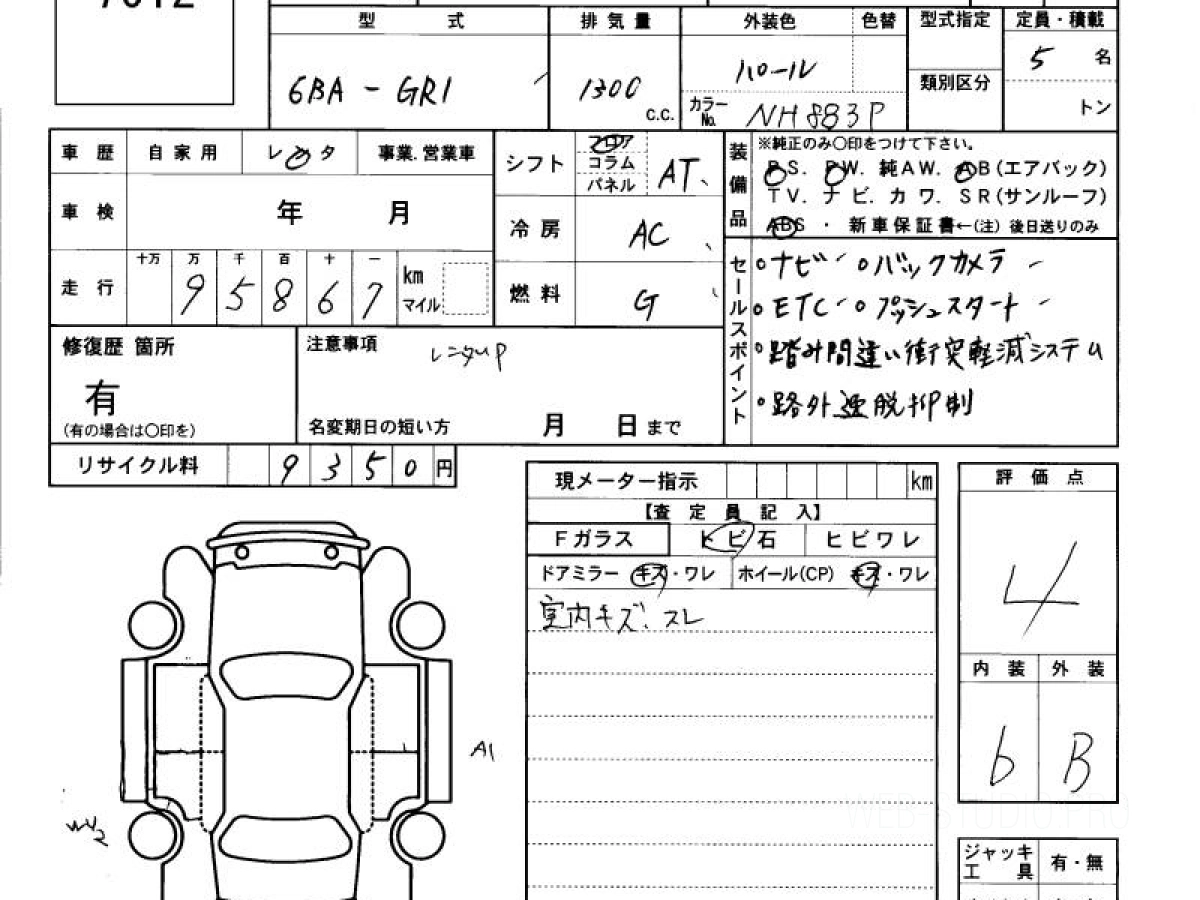 7012
型 式 排 気 量 外装色 色替 型式指定 定員・積載
6BA - GR1 1300 c.c. パール 5 名
カラーNo. NH883P 類別区分 トン
車 歴 自 家 用 レ ン タ 事業. 営業車
シフト フロア コラム パネル AT
装備品 ※純正のみ〇印をつけて下さい。
PS. PW. 純AW. AB(エアバック)
TV. ナ ビ. カ ワ. SR(サンルーフ)
ABS ・ 新車保証書←(注) 後日送りのみ
車 検 年 月
冷 房 AC
走 行 十万 万 千 百 十 一
9 5 8 6 7 km マイル
燃 料 G
セールスポイント
ナビ バックカメラ
ETC プッシュスタート
踏み間違い衝突軽減システム
路外逸脱抑制
修復歴 箇所
有
(有の場合は〇印を)
注意事項 レンタUP
名変期日の短い方 月 日 まで
リサイクル料 9 3 5 0 円
現メーター指示 km
【査 定 員 記 入】
Fガラス トビ石 ヒビワレ
ドアミラー キズ・ワレ ホイール(CP) キズ・ワレ
室内キズ、スレ
評 価 点
4
内 装 外 装
b B
A1
WU2
ジャッキ 工 具 有・無
WEB-STUDIO.PRO